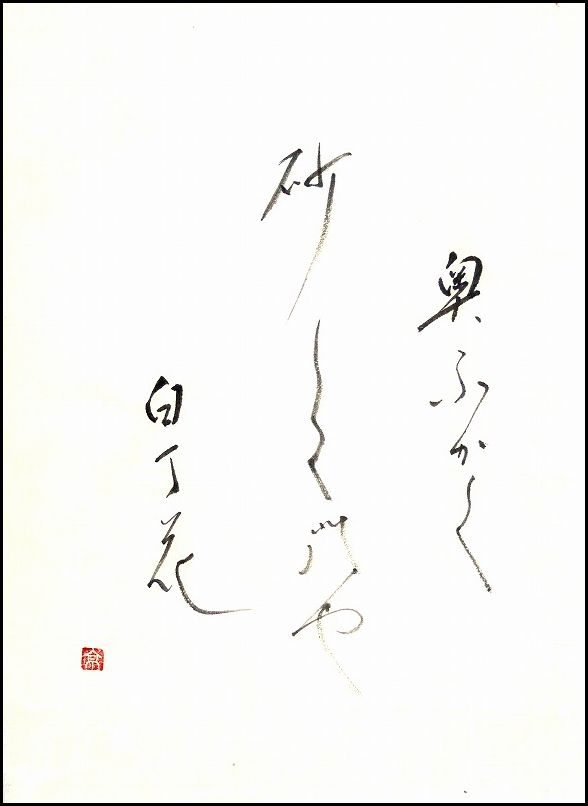 奥ふかく
砂しく門や
白丁花